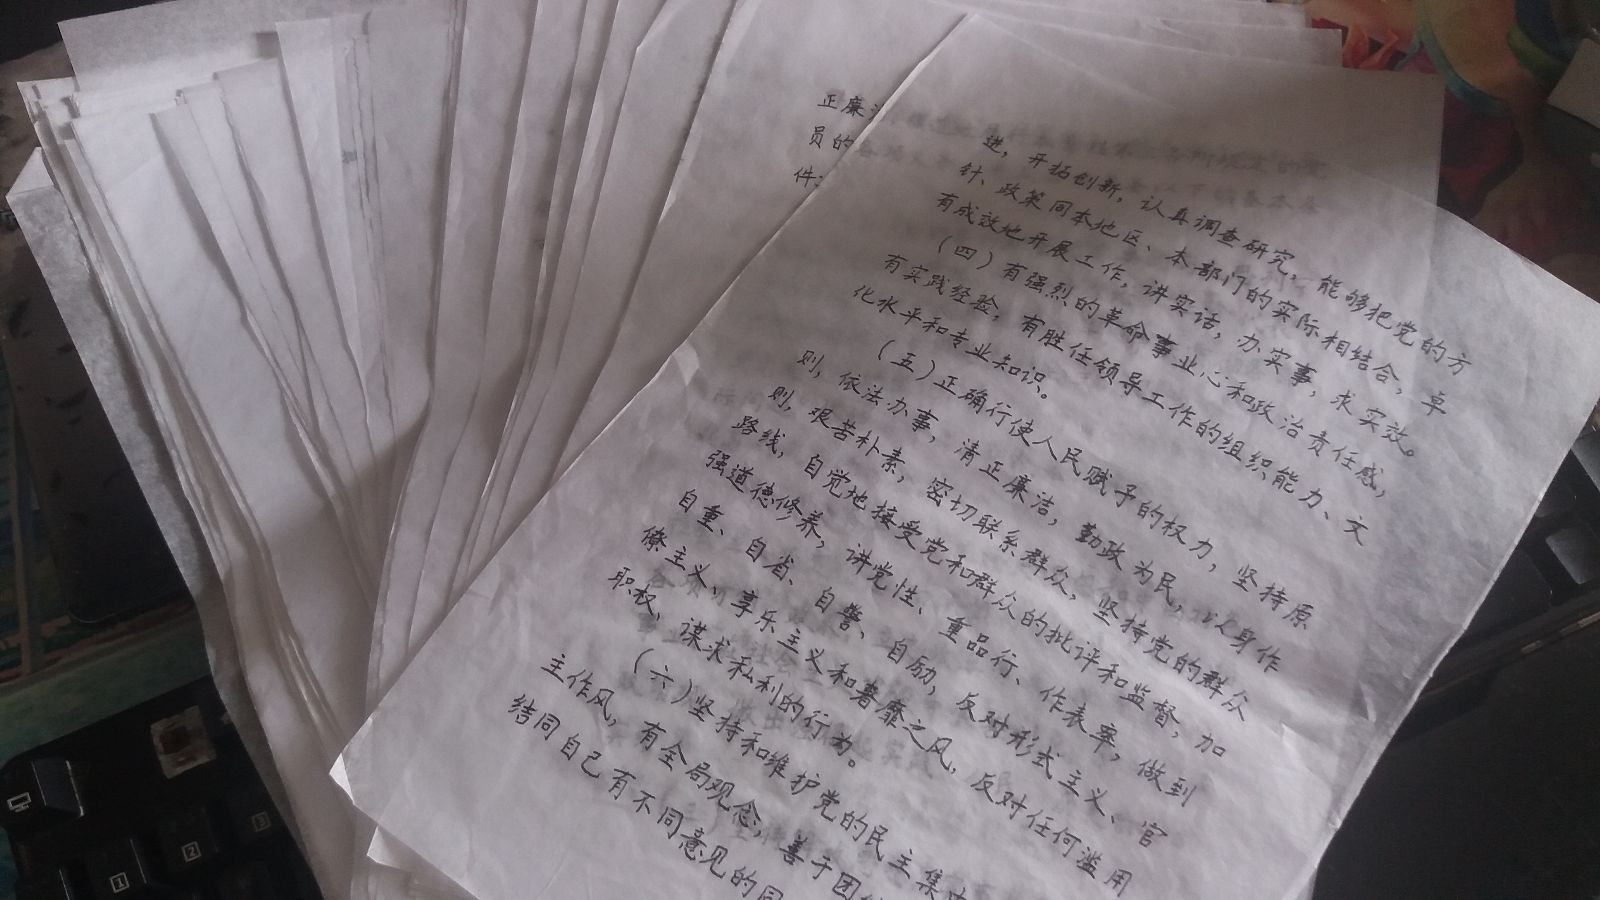 正廉
员的
件
进，开拓创新，认真调查研究，能够把党的方
针、政策同本地区、本部门的实际相结合，卓
有成效地开展工作，讲实话，办实事，求实效。
（四）有强烈的革命事业心和政治责任感，
有实践经验，有胜任领导工作的组织能力、文
化水平和专业知识。
（五）正确行使人民赋予的权力，坚持原
则，依法办事，清正廉洁，勤政为民，以身作
则，艰苦朴素，密切联系群众，坚持党的群众
路线，自觉地接受党和群众的批评和监督，加
强道德修养，讲党性、重品行、作表率，做到
自重、自省、自警、自励，反对形式主义、官
僚主义、享乐主义和奢靡之风，反对任何滥用
职权、谋求私利的行为。
（六）坚持和维护党的民主集中
主作风，有全局观念，善于团
结同自己有不同意见的同
1
2
3